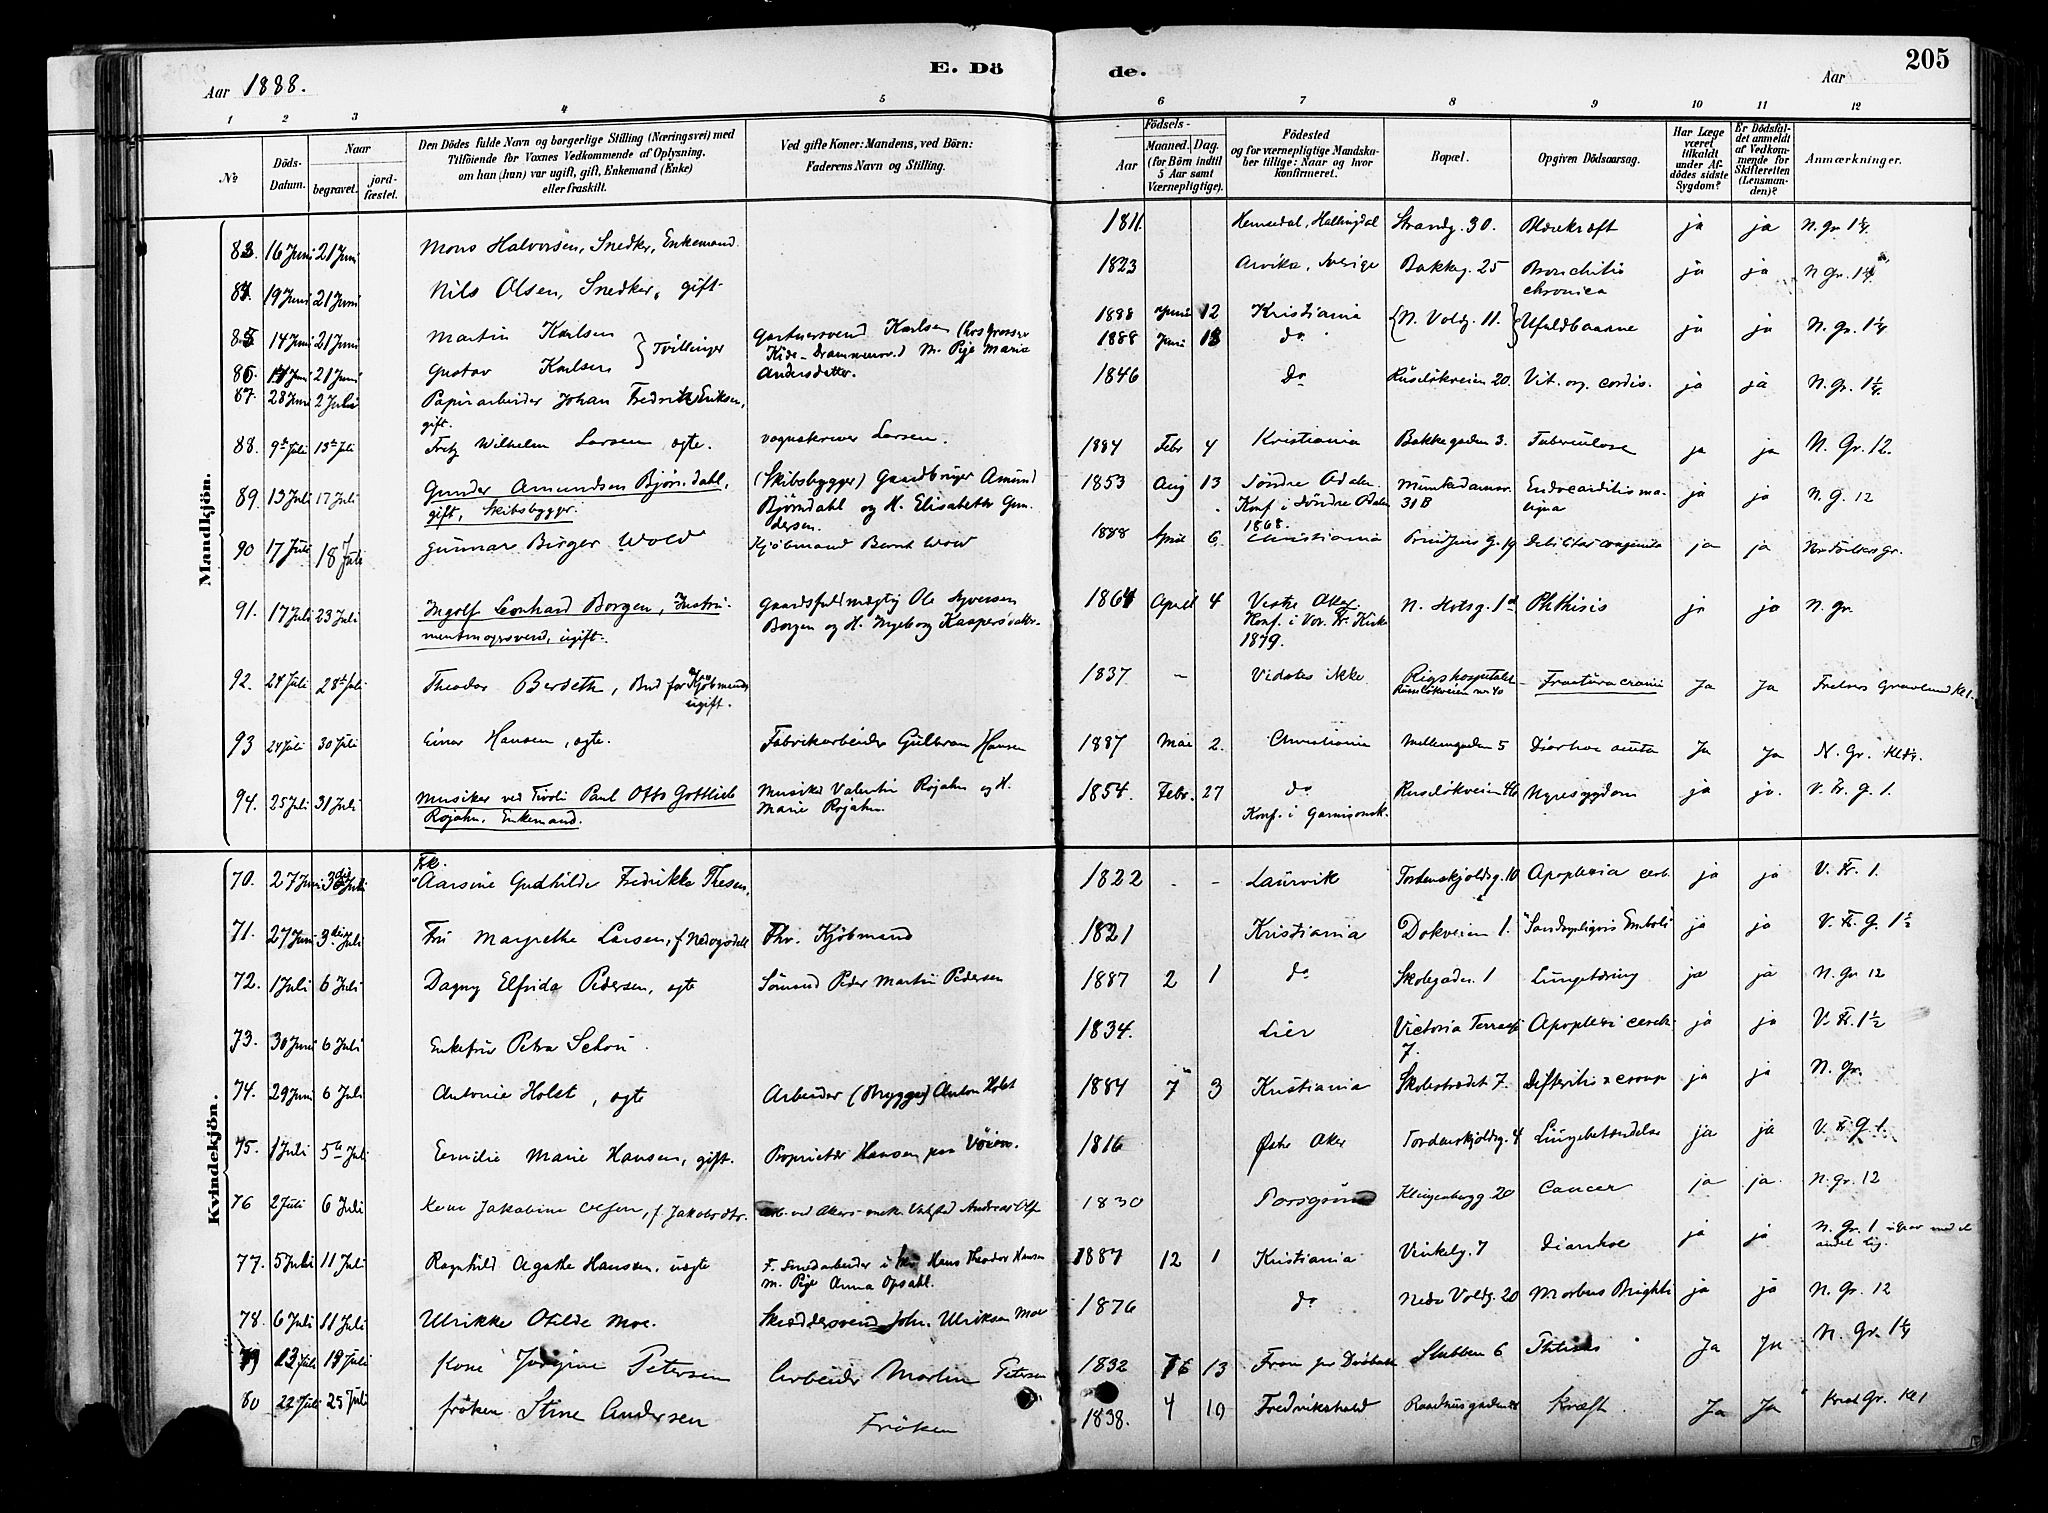 Aar 1888.
E. Dö de.
Aar
205
1 2 3 4 5 6 7 8 9 10 11 12
№
Döds-Datum.
Naar
begravet.
jordfæstet.
Den Dödes fulde Navn og borgerlige Stilling (Næringsvei) med
Tilföiende for Voxnes Vedkommende af Oplysning,
om han (hun) var ugift, gift, Enkemand (Enke)
eller fraskilt.
Ved gifte Koner: Mandens, ved Börn:
Faderens Navn og Stilling.
Födsels-
Aar
Maaned. Dag.
(for Börn indtil
5 Aar samt
Værnepligtige).
Födested
og for værnepligtige Mandska-
ber tillige: Naar og hvor
konfirmeret.
Bopæl.
Opgiven Dödsaarsag.
Har Læge
været
tilkaldt
under Af-
dödes sidste
Sygdom?
Er Dödsfal-
det anmeldt
af Vedkom-
mende for
Skifteretten
(Lensman-
den)?
Anmærkninger.
Mandkjön.
83. 16 Juni 21 Juni Mons Halvorsen, Snedker, Enkemand. 1811 Hemsedal, Hallingdal Strandg. 30. ja ja N. gr. 1/4
84. 19 Juni 21 Juni Nils Olsen, Snedker, gift 1823 Arvika, Sverige Bakkeg. 25 Bronchitis chronica ja ja N Gr. 1/4
85 14 Juni 21 Juni Martin Karlsen } Tvillinger Gartnersvend Karlsen 1888 Juni 12 Kristiania N. Voldg. 11. Ufuldbaarne ja ja N. Gr. 1/4
86 21 Juni Gustav Karlsen m. Pige Maria Andersdatter. 1888 Juni 13 do
87. 28 Juni 2 Juli Papirarbeider Johan Fredrik Eriksen, gift. 1846 Do Ruseløkveien 20. Vit. org. cordis. ja ja N. Gr. 1/4
88. 9de Juli 13de Juli Fritz Wilhelm Larsen ægte. Vognskriver Larsen. 1884 Febr 4 Kristiania Bakkegaden 3. Tuberculose ja ja N. Gr. 12.
89. 13 Juli 17 Juli Gunder Amundsen Bjørndahl, gift, Skibsbygger. (Skibsbygger) Gaardbruger Amund Bjørndahl og H. Elisabeth Gundersen. 1853 Aug 13 Søndre Odalen Konf. i Søndre Odalen 1868. Munkedamsv. 31 B Endocarditis maligna ja ja N. G. 12
90 17 Juli 18 Juli Gunnar Birger Wold Kjøbmand Bernt Wold 1888 April 6 Christiania Prindsens G. 19 Debilitas congenita ja ja
91. 17 Juli 23 Juli Ingolf Leonhard Borgen, Instrumentmagersvend, ugift. Gaardsfuldmægtig Ole Syversen Borgen og H. Ingeborg Kaspersdatter. 1864 April 4 Vestre Aker. Konf. i Vor Fr. Kirke 1879. Phthisis ja ja N. gr.
92. 24 Juli 28de Juli Theodor Berseth, Bud for Kjøbmænd, ugift. 1837 — Vidstes ikke Rigshospitalet Ruseløkveien nr 40 Fractura cranii Ja Ja
93 24 Juli 30 Juli Einar Hansen, ægte. Fabrikarbeider Gulbran Hansen 1887 Mai 2. Christiania Mellemgaden 5 Diarrhoe acuta Ja Ja
94. 25 Juli 31 Juli Musiker ved Tivoli Paul Otto Gottlieb Rojahn. Enkemand. Musiker Valentin Rojahn og H. Marie Rojahn. 1854. Febr. 27 do Konf. i Garnisonsk. Ruseløkveien 46 Nyresygdom ja ja. V. Fr. G. 1.
Kvindekjön.
70. 27 Juni 3die Juli Frk. Aarsine Gudhilde Fredrikke Thesen, 1822 - - Laurvik Tordenskjoldsg. 10 Apoplexia cerb. ja ja V. Fr. 1.
71. 27 Juni 3die Juli Fru Margrethe Larsen, Kjøbmand 1821 Kristiania Dokveien 1. "Sandsynligvis Emboli" ja ja V. Fr. G. 1/2
72. 1 Juli 6 Juli Dagny Elfrida Pedersen, ægte Sömand Peder Martin Pedersen 1887 2 1 do Skolegaden 1 Lungetæring ja ja N. Gr 12
73. 30 Juni 6 Juli Enkefru Petra Schou. 1834. Lier Victoria Terrasse 7. Apoplexi cerebri ja ja V. Fr. 1/2
74. 29 Juni 6 Juli Antonie Holst, ægte Arbeider (Brygge) Anton Holst 1884 7 3 Kristiania Skolestrædet 7. Difteritis & croup ja ja N. Gr.
75. 1 Juli 5te Juli Emilie Marie Hansen, gift. Proprietær Hansen paa Vøien. 1816 Østre Aker Tordenskjoldsg. 4 Lungebetændelse ja ja V. Fr. G. 1.
76 2 Juli 6 Juli Kone Jakobine Olsen, f. Jakobsdtr. Arb. ved Akers mek. Verksted Andreas Olsen 1830 Porsgrund Klingenbergg. 20 Cancer ja ja. N. gr. 12
77. 5 Juli 11 Juli Ragnhild Agathe Hanssen, uægte F. Smedarbeider Hans Theodor Hansen m. Pige Anna Opsahl. 1887 12 1 Kristiania Vinkelg. 7 Diarrhoe ja ja N. Gr. 1 i Grav med et andet Lig.
78. 6 Juli 11 Juli Ulrikke Otilde Moe. Skræddersvend Joh. Ulriksen Moe 1876 do Nedre Voldg. 20 Morbus Brighti ja ja N. Gr. 12
79 13 Juli 19 Juli Kone Jørgine Petersen Arbeider Martin Petersen 1832 6 13 Slubben 6 Ja Ja N. Gr. 1/4
80 22 Juli 25 Juli Fröken Stine Andersen Fröken 1838. 4 19 Fredrikshald Raadhusgaden Kræft. Ja Ja